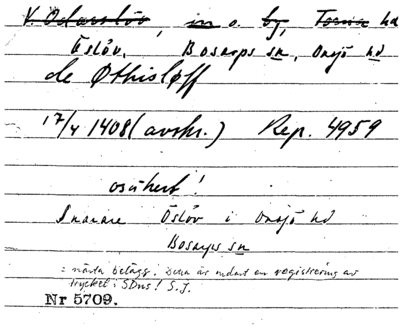 V. Odarslöv, in o. by, Torna hd
Öslöv, Bosarps sn, Onsjö hd
de Øthisløff
17/4 1408 (avskr.) Rep. 4959
osäkert!
Snarare Öslöv i Onsjö hd
Bosarps sn
= nästa belägg. Detta är endast en registrering av
trycket i SDns! S.J.
Nr 5709.